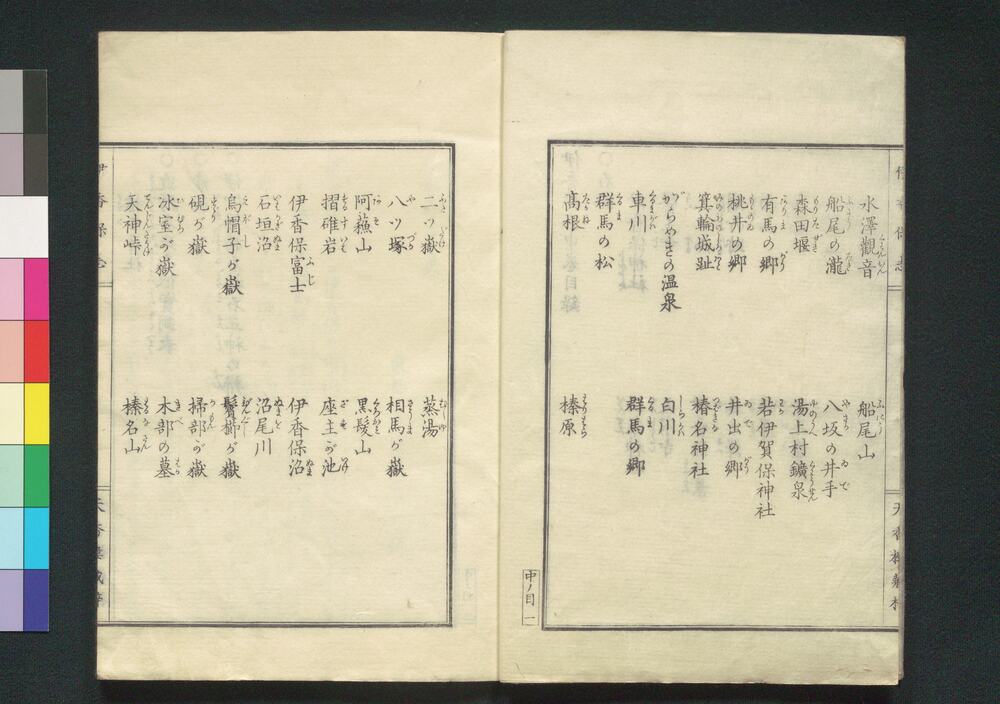 水澤觀音
船尾山
船尾の瀧
八坂の井手
森田堰
湯上村鑛泉
有馬の郷
若伊賀保神社
桃井の郷
井出の郷
箕輪城趾
椿名神社
がらめきの温泉
白川
車川
群馬の郷
群馬の松
榛原
髙根
中ノ目一
二ッ嶽
蒸湯
八ッ塚
相馬が嶽
阿蘓山
黒髪山
摺碓岩
座主が池
伊香保富士
伊香保沼
石垣沼
沼尾川
烏帽子が嶽
鬢櫛が嶽
硯が嶽
掃部が嶽
氷室が嶽
木部の墓
天神峠
榛名山
伊香保志